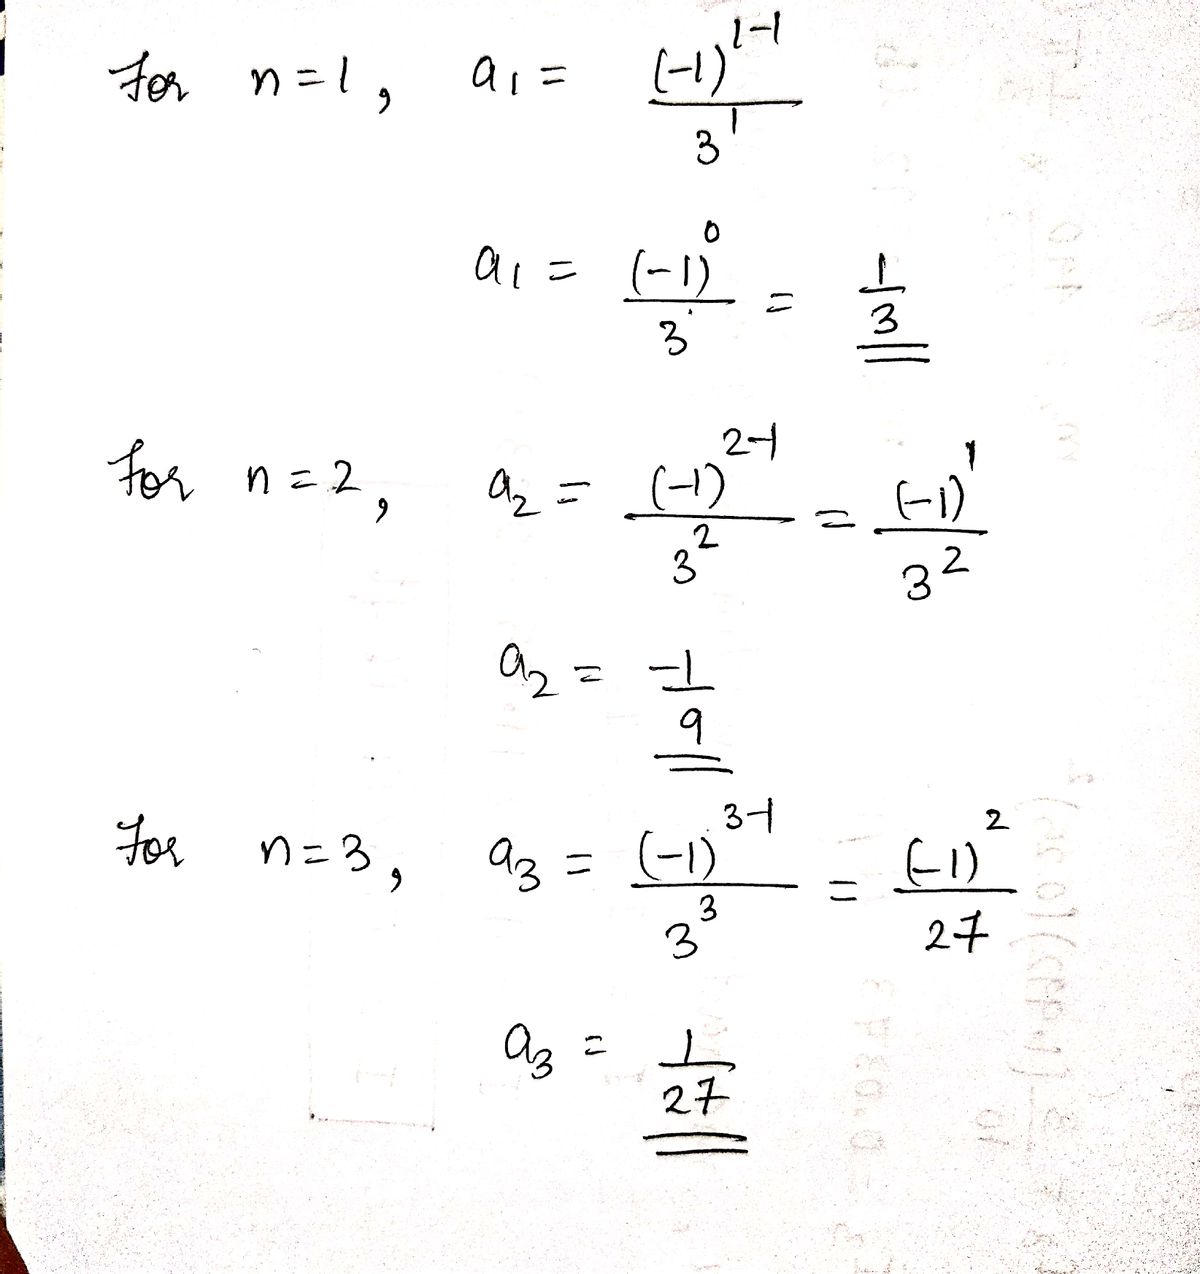 For n=1, a₁ = (-1)^(1-1) / 3^1
a₁ = (-1)^0 / 3 = 1/3
For n=2, a₂ = (-1)^(2-1) / 3^2 = (-1)^1 / 3^2
a₂ = -1/9
For n=3, a₃ = (-1)^(3-1) / 3^3 = (-1)^2 / 27
a₃ = 1/27